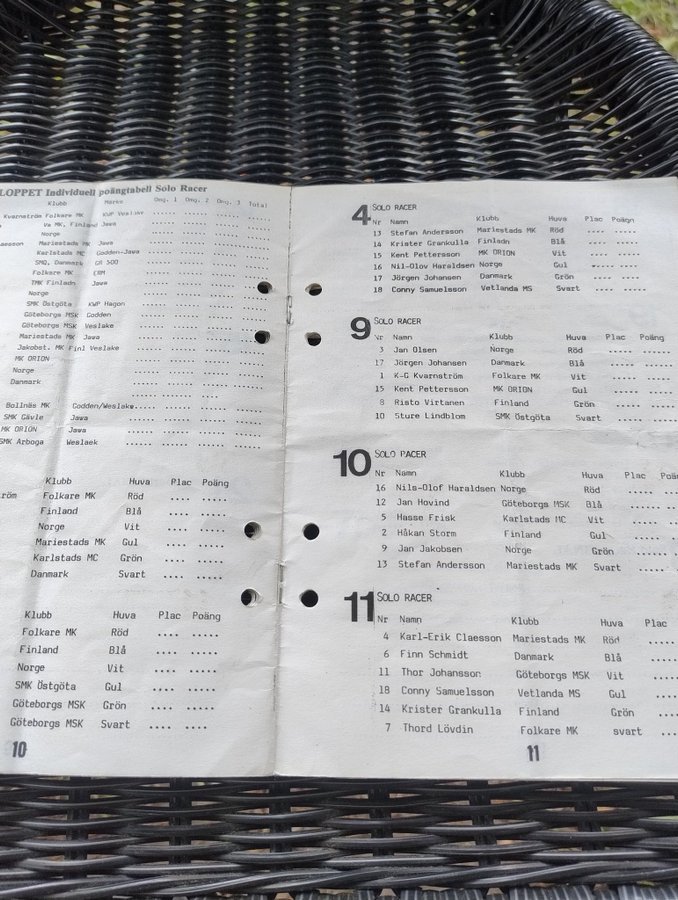 LOPPET Individuell poängtabell Solo Racer
Klubb Märke Omg. 1 Omg. 2 Omg. 3 Total
Kvarnström Folkare MK KWP Veslake ..... ..... ..... .....
Va MK, Finland Jawa ..... ..... ..... .....
Norge ..... ..... ..... .....
laesson Mariestads MK Jawa ..... ..... ..... .....
Karlstads MC Godden-Jawa ..... ..... ..... .....
SMQ, Danmark GM 500 ..... ..... ..... .....
Folkare MK ERM ..... ..... ..... .....
TMK Finladn Jawa ..... ..... ..... .....
Norge ..... ..... ..... .....
SMK Östgöta KWP Hagon ..... ..... ..... .....
Göteborgs MSK Godden ..... ..... ..... .....
Göteborgs MSK Veslake ..... ..... ..... .....
Mariestads MK Jawa ..... ..... ..... .....
Jakobst. MK Finl Veslake ..... ..... ..... .....
MK ORION ..... ..... ..... .....
Norge ..... ..... ..... .....
Danmark ..... ..... ..... .....
Bollnäs MK Godden/Weslake..... ..... ..... .....
SMK Gävle Jawa ..... ..... ..... .....
MK ORION Jawa ..... ..... ..... .....
SMK Arboga Weslaek ..... ..... ..... .....
Klubb Huva Plac Poäng
röm Folkare MK Röd .... .....
Finland Blå .... .....
Norge Vit .... .....
Mariestads MK Gul .... .....
Karlstads MC Grön .... .....
Danmark Svart .... .....
Klubb Huva Plac Poäng
Folkare MK Röd .... .....
Finland Blå .... .....
Norge Vit .... .....
SMK Östgöta Gul .... .....
Göteborgs MSK Grön .... .....
Göteborgs MSK Svart .... .....
10
4 SOLO RACER
Nr Namn Klubb Huva Plac Poäqn
13 Stefan Andersson Mariestads MK Röd .... .....
14 Krister Grankulla Finladn Blå .... .....
15 Kent Pettersson MK ORION Vit .... .....
16 Nil-Olov Haraldsen Norge Gul .... .....
17 Jörgen Johansen Danmark Grön .... .....
18 Conny Samuelsson Vetlanda MS Svart .... .....
9 SOLO RACER
Nr Namn Klubb Huva Plac Poäng
3 Jan Olsen Norge Röd .... .....
17 Jörgen Johansen Danmark Blå .... .....
1 K-G Kvarnström Folkare MK Vit .... .....
15 Kent Pettersson MK ORION Gul .... .....
8 Risto Virtanen Finland Grön .... .....
10 Sture Lindblom SMK Östgöta Svart .... .....
10 SOLO RACER
Nr Namn Klubb Huva Plac Poän
16 Nils-Olof Haraldsen Norge Röd .... .....
12 Jan Hovind Göteborgs MSK Blå .... .....
5 Hasse Frisk Karlstads MC Vit .... .....
2 Håkan Storm Finland Gul .... .....
9 Jan Jakobsen Norge Grön .... .....
13 Stefan Andersson Mariestads MK Svart .... .....
11 SOLO RACER
Nr Namn Klubb Huva Plac
4 Karl-Erik Claesson Mariestads MK Röd ....
6 Finn Schmidt Danmark Blå ....
11 Thor Johansson Göteborgs MSK Vit ....
18 Conny Samuelsson Vetlanda MS Gul ....
14 Krister Grankulla Finland Grön ....
7 Thord Lövdin Folkare MK svart ....
11